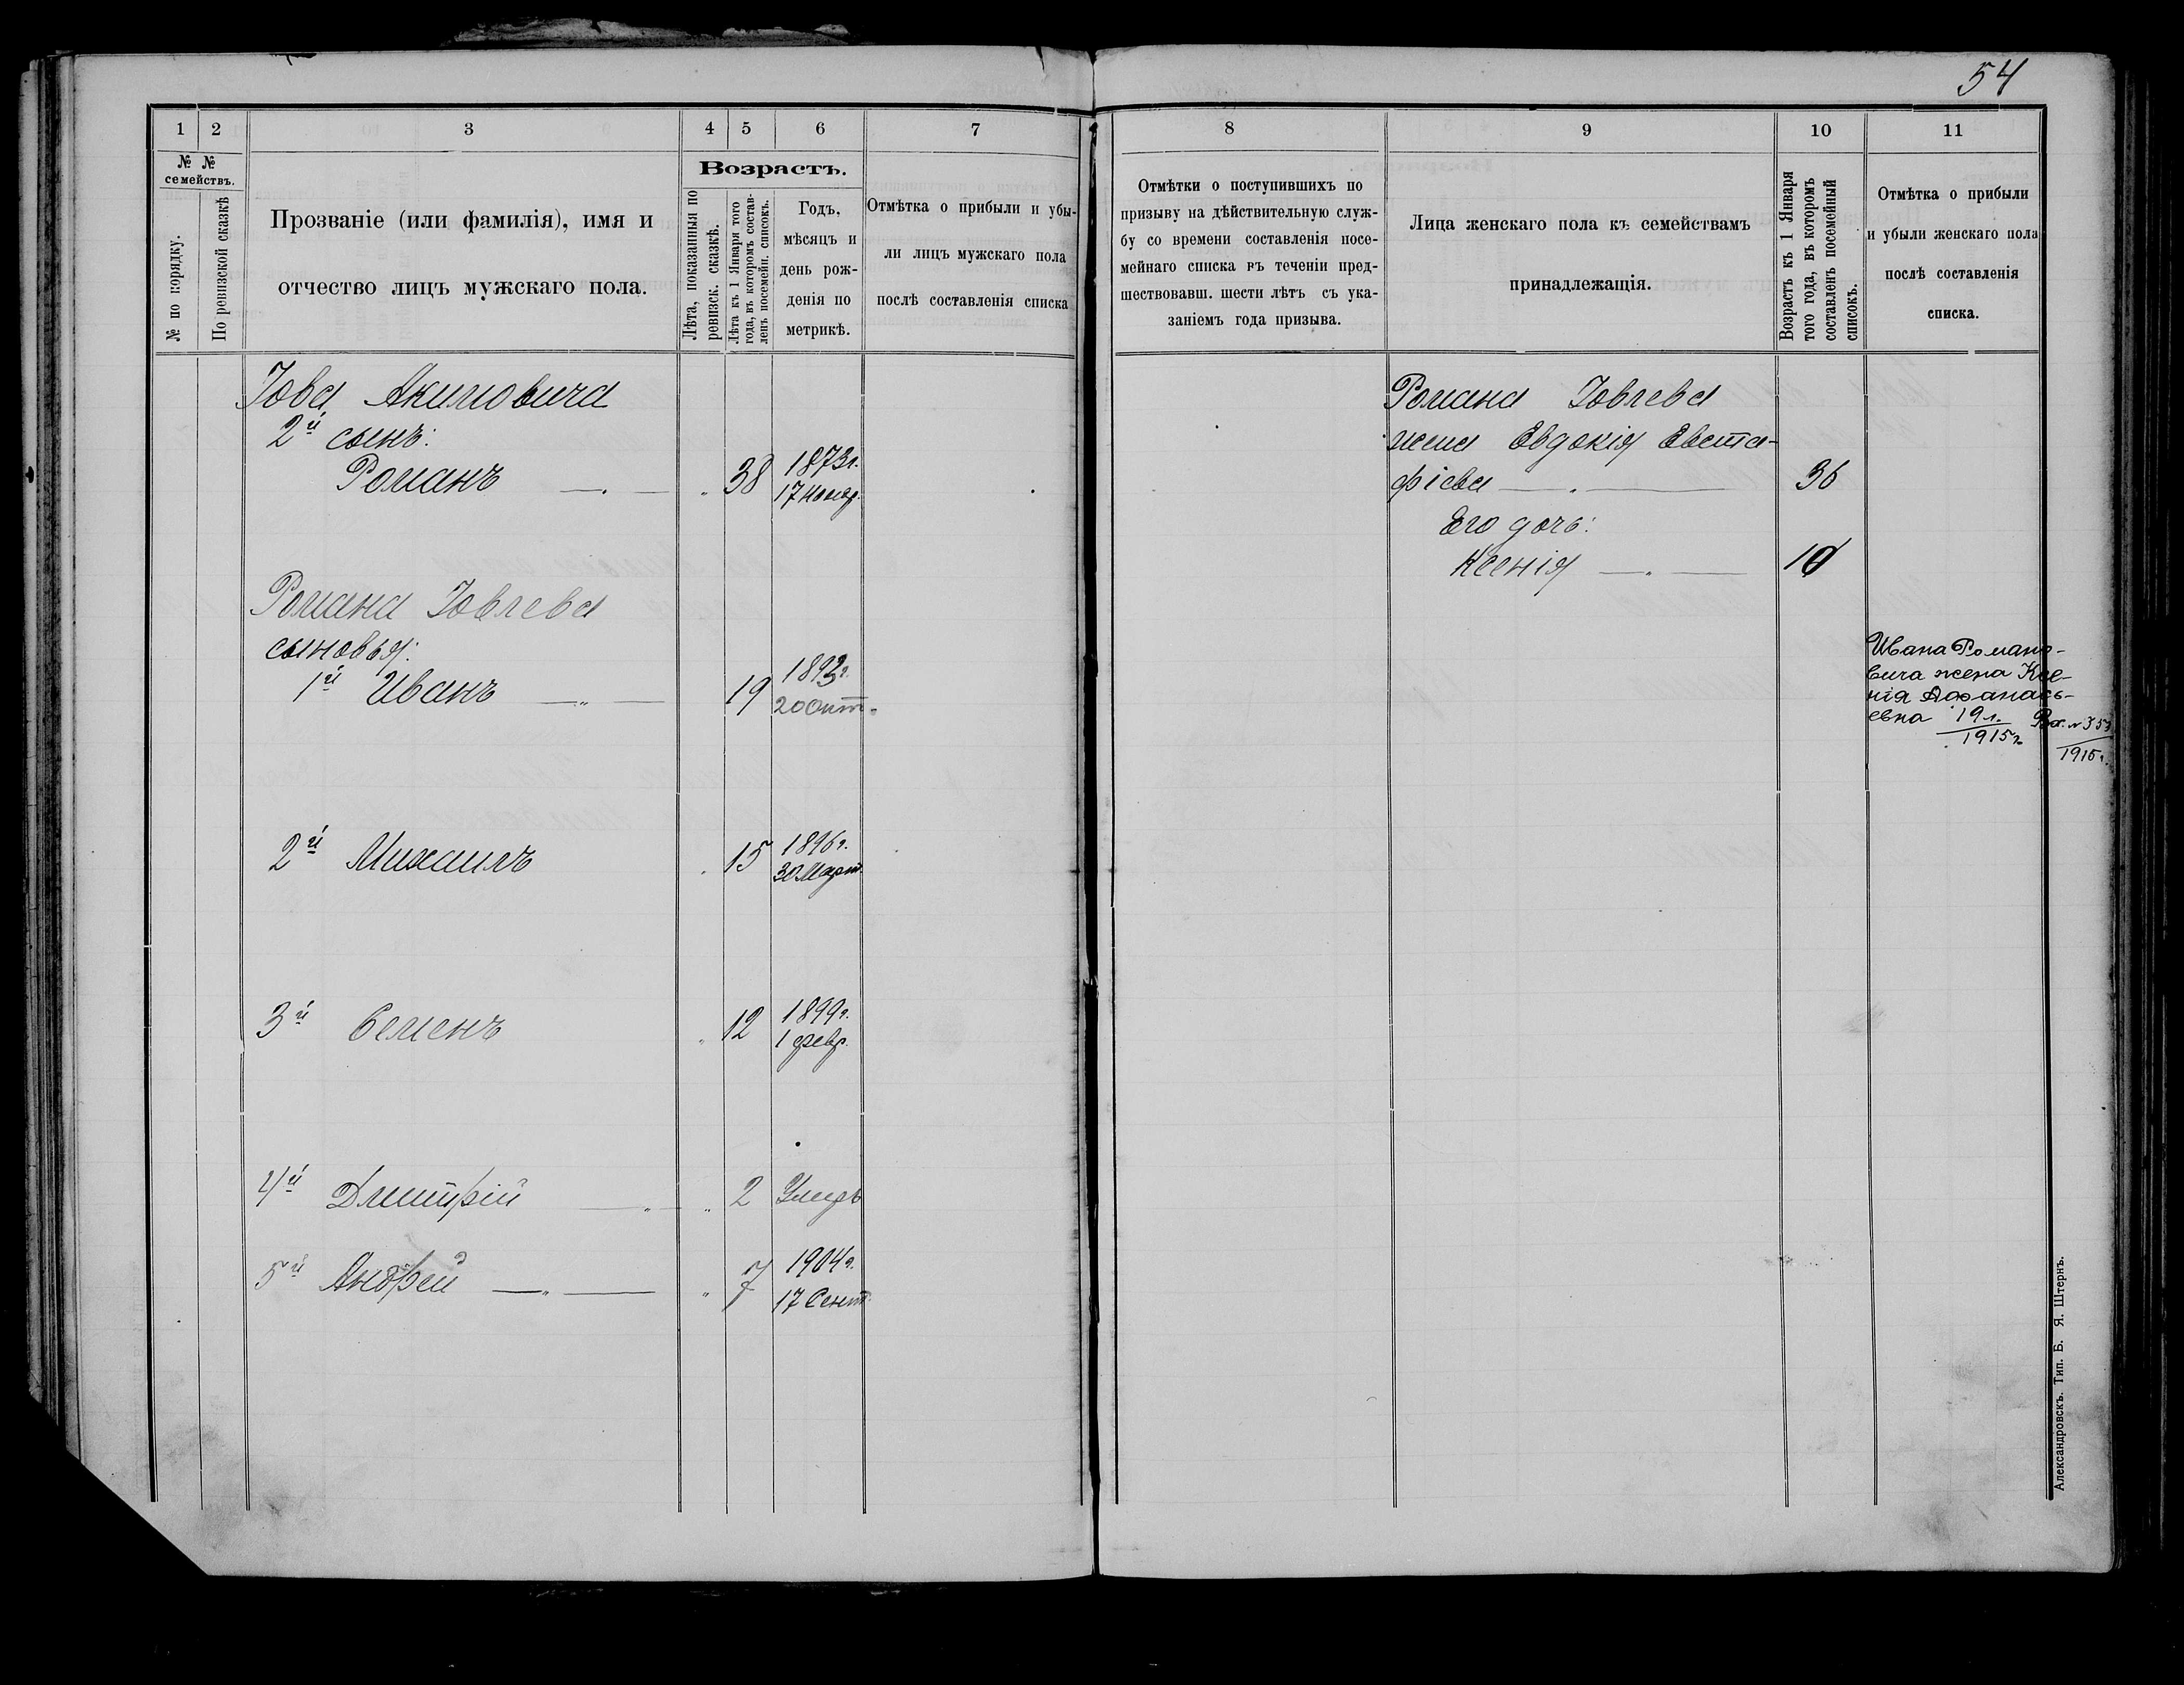 54
1 2 3 4 5 6 7
№ № семействъ.
№ по порядку.
По ревизской сказкѣ
Прозваніе (или фамилія), имя и
отчество лицъ мужскаго пола.
Возрастъ.
Лѣта, показанныя по
ревизск. сказкѣ.
Лѣта къ 1 Января того
года, въ которомъ состав-
ленъ посемейн. списокъ.
Годъ,
мѣсяцъ и
день рож-
денія по
метрикѣ.
Отмѣтка о прибыли и убы-
ли лицъ мужскаго пола
послѣ составленія списка
Іова Акимовича
2й сынъ:
Романъ 38 1873г.
17 ноябр.
Романа Іовлева
сыновья:
1й Иванъ 19 1892г.
20 Окт.
2й Михаилъ 15 1896г.
30 Март.
3й Семенъ 12 1899г.
1 февр.
4й Дмитрій 2 Умеръ
5й Андрей 7 1904г.
17 Сент.
8 9 10 11
Отмѣтки о поступившихъ по
призыву на дѣйствительную служ-
бу со времени составленія посе-
мейнаго списка въ теченіи пред-
шествовавш. шести лѣтъ съ ука-
заніемъ года призыва.
Лица женскаго пола къ семействамъ
принадлежащія.
Возрастъ къ 1 Января
того года, въ которомъ
составленъ посемейный
списокъ.
Отмѣтка о прибыли
и убыли женскаго пола
послѣ составленія
списка.
Романа Іовлева
жена Евдокія Евста-
фіева 36
Его дочь:
Ксенія 10
Ивана Романо-
вича жена Ксе-
нія Афанась-
евна 19 л. Вх. №353
1915г. 1915г.
Александровскъ. Тип. Б. Я. Штернъ.